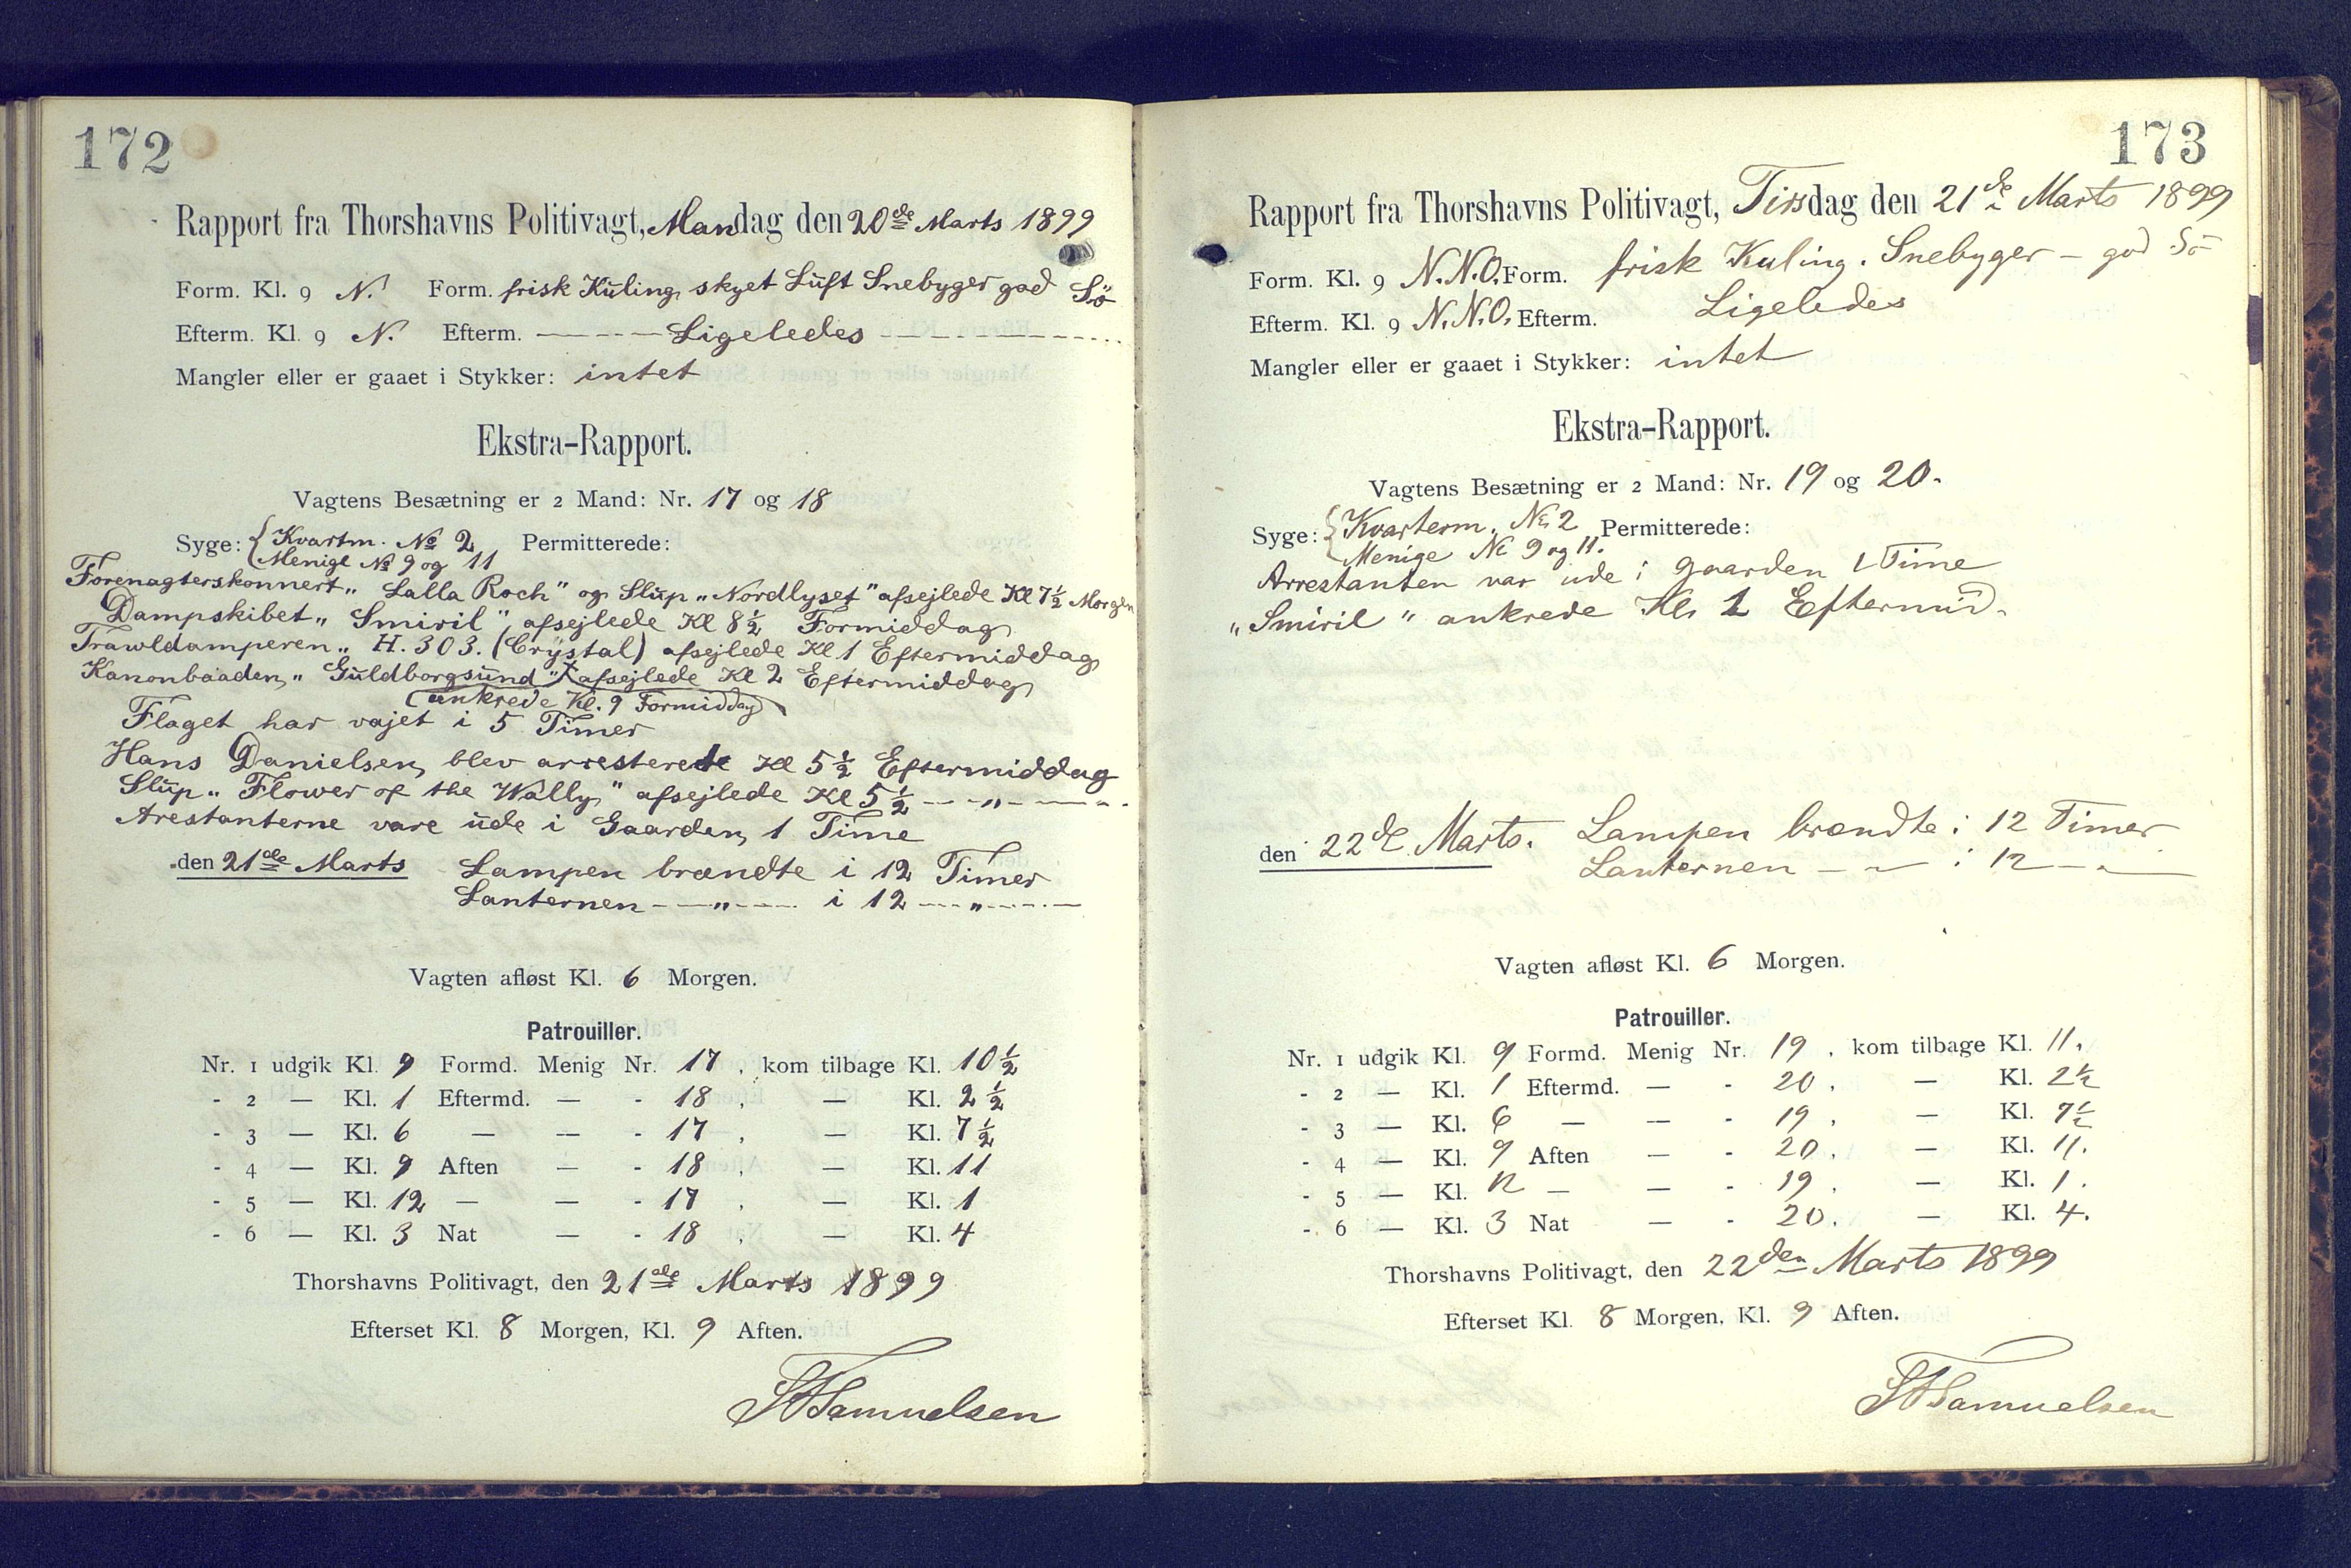 172
Rapport fra Thorshavns Politivagt, Mandag den 20de Marts 1899
Form. Kl. 9 N. Form. frisk Kuling, skyet Luft Snebyger god Sö
Efterm. Kl. 9 N. Efterm. — Ligeledes —
Mangler eller er gaaet i Stykker: intet
Ekstra-Rapport.
Vagtens Besætning er 2 Mand: Nr. 17 og 18
Syge: { Kvartm. No 2 Permitterede:
Menige No 9 og 11
Forenagterskonnert „Lalla Roch" og Slup „Nordlyset" afsejlede Kl 7½ Morgen
Dampskibet „Smiril" afsejlede Kl 8½ Formiddag
Trawldamperen „H. 303. (Crystal) afsejlede Kl 1 Eftermiddag
Kanonbaaden „Guldborgsund" afsejlede Kl 2 Eftermiddag
(ankrede Kl. 9 Formiddag)
Flaget har vajet i 5 Timer
Hans Danielsen, blev arresterede Kl 5½ Eftermiddag
Slup „Flower of the Wally" afsejlede Kl 5½ — „ —
Arestanterne vare ude i Gaarden, 1 Time
den 21de Marts Lampen brændte i 12 Timer
Lanternen — „ — i 12 — „ —
Vagten afløst Kl. 6 Morgen.
Patrouiller.
Nr. 1 udgik Kl. 9 Formd. Menig Nr. 17, kom tilbage Kl. 10½
- 2 — Kl. 1 Eftermd. — - 18, — Kl. 2½
- 3 — Kl. 6 — — - 17, — Kl. 7½
- 4 — Kl. 9 Aften — - 18, — Kl. 11
- 5 — Kl. 12 — — - 17, — Kl. 1
- 6 — Kl. 3 Nat — - 18, — Kl. 4
Thorshavns Politivagt, den 21de Marts 1899
Efterset Kl. 8 Morgen, Kl. 9 Aften.
Samuelsen
173
Rapport fra Thorshavns Politivagt, Tirsdag den 21de Marts 1899
Form. Kl. 9 N.N.O. Form. frisk Kuling. Snebyger - god Sö
Efterm. Kl. 9 N.N.O. Efterm. Ligeledes
Mangler eller er gaaet i Stykker: intet
Ekstra-Rapport.
Vagtens Besætning er 2 Mand: Nr. 19 og 20.
Syge: { Kvarterm. No 2 Permitterede:
Menige No 9 og 11.
Arrestanten var ude i gaarden 1 Time
„Smiril" ankrede Kl. 1 Eftermid.
den 22de Marts. Lampen brændte i 12 Timer
Lanternen — „ — i 12 — „ —
Vagten afløst Kl. 6 Morgen.
Patrouiller.
Nr. 1 udgik Kl. 9 Formd. Menig Nr. 19, kom tilbage Kl. 11.
- 2 — Kl. 1 Eftermd. — - 20, — Kl. 2½
- 3 — Kl. 6 — — - 19, — Kl. 7½
- 4 — Kl. 9 Aften — - 20, — Kl. 11.
- 5 — Kl. 12 — — - 19, — Kl. 1.
- 6 — Kl. 3 Nat — - 20. — Kl. 4.
Thorshavns Politivagt, den 22den Marts 1899
Efterset Kl. 8 Morgen, Kl. 9 Aften.
Samuelsen